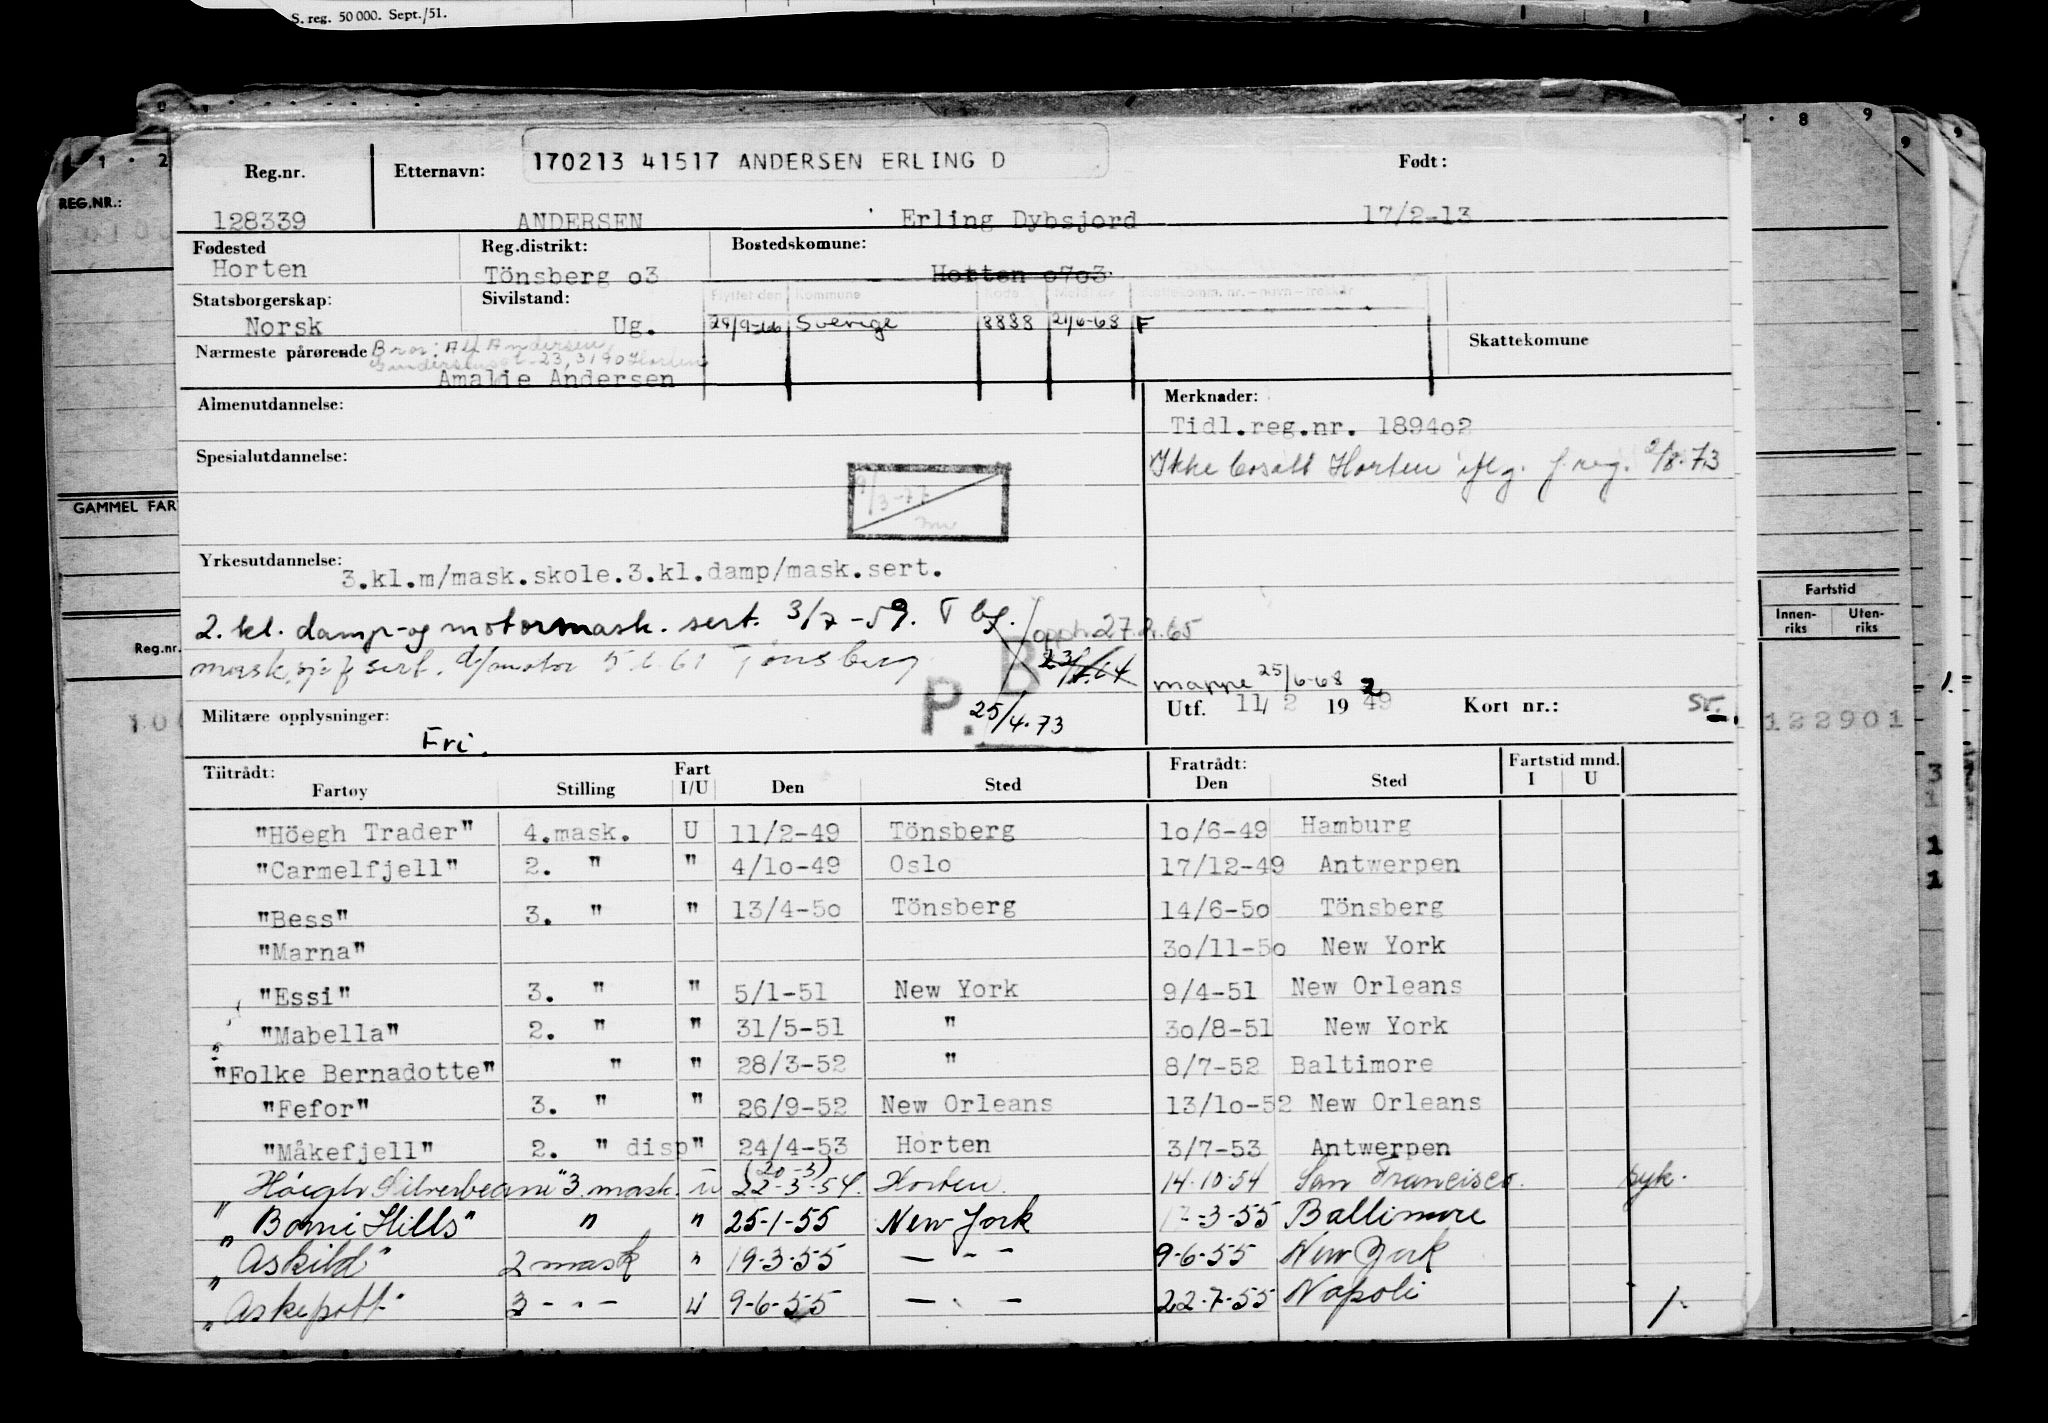 S. reg. 50 000. Sept./51.
8 9
1 · 2
REG.NR.:
Reg.nr. Etternavn: 170213 41517 ANDERSEN ERLING D Født:
128339 ANDERSEN Erling Dybsjord 17/2-13
Fødested Reg.distrikt: Bostedskomune:
Horten Tönsberg o3 Horten o7o3
Statsborgerskap: Sivilstand: Flyttet den Kommune Kode Meldt av Skattekomm. nr. – navn – trekkår
Norsk Ug. 29/9-66 Sverige 8888 21/6-68 F
Nærmeste pårørende Bror: Alf Andersen, Skattekomune
23, 3190 Horten
Amalie Andersen
Almenutdannelse: Merknader:
Tidl.reg.nr. 1894o2
Spesialutdannelse: Ikke bosatt Horten iflg. f.reg. 2/8-73
9/3-77
GAMMEL FAR
Yrkesutdannelse: 3.kl.m/mask.skole.3.kl.damp/mask.sert.
Fartstid
Innen-riks Uten-riks
2. kl. damp- og motormask. sert. 3/7-59. T bg. opph. 27.2.65
Reg.nr.
mask.sjef sert. d/motor 5.6.61 Tønsberg B
mappe 25/6-68 2
P. 25/4.73 Utf. 11/2 1949 Kort nr.: sr.
Militære opplysninger: Fri. 122901
Tiltrådt: Fratrådt: Fartstid mnd.
Fartøy Stilling Fart I/U Den Sted Den Sted I U
"Höegh Trader" 4.mask. U 11/2-49 Tönsberg 1o/6-49 Hamburg
"Carmelfjell" 2. " " 4/1o-49 Oslo 17/12-49 Antwerpen
"Bess" 3. " " 13/4-5o Tönsberg 14/6-5o Tönsberg
"Marna" 3o/11-5o New York
"Essi" 3. " " 5/1-51 New York 9/4-51 New Orleans
"Mabella" 2. " " 31/5-51 " 3o/8-51 New York
"Folke Bernadotte" " " 28/3-52 " 8/7-52 Baltimore
"Fefor" 3. " " 26/9-52 New Orleans 13/1o-52 New Orleans
"Måkefjell" 2. " disp" 24/4-53 Horten 3/7-53 Antwerpen
(20-3)
"Höegh Silverbeam" 3. mask. u 22-3-54. Horten 14.10.54 San Francisco. syk.
"Bomi Hills" " " 25-1-55 New York 17-3-55 Baltimore
"Askild" 2 mask " 19-3-55 — " — 9-6-55 New York
"Askepott" 3 - " - U 9-6-55 — " — 22-7-55 Napoli 1.